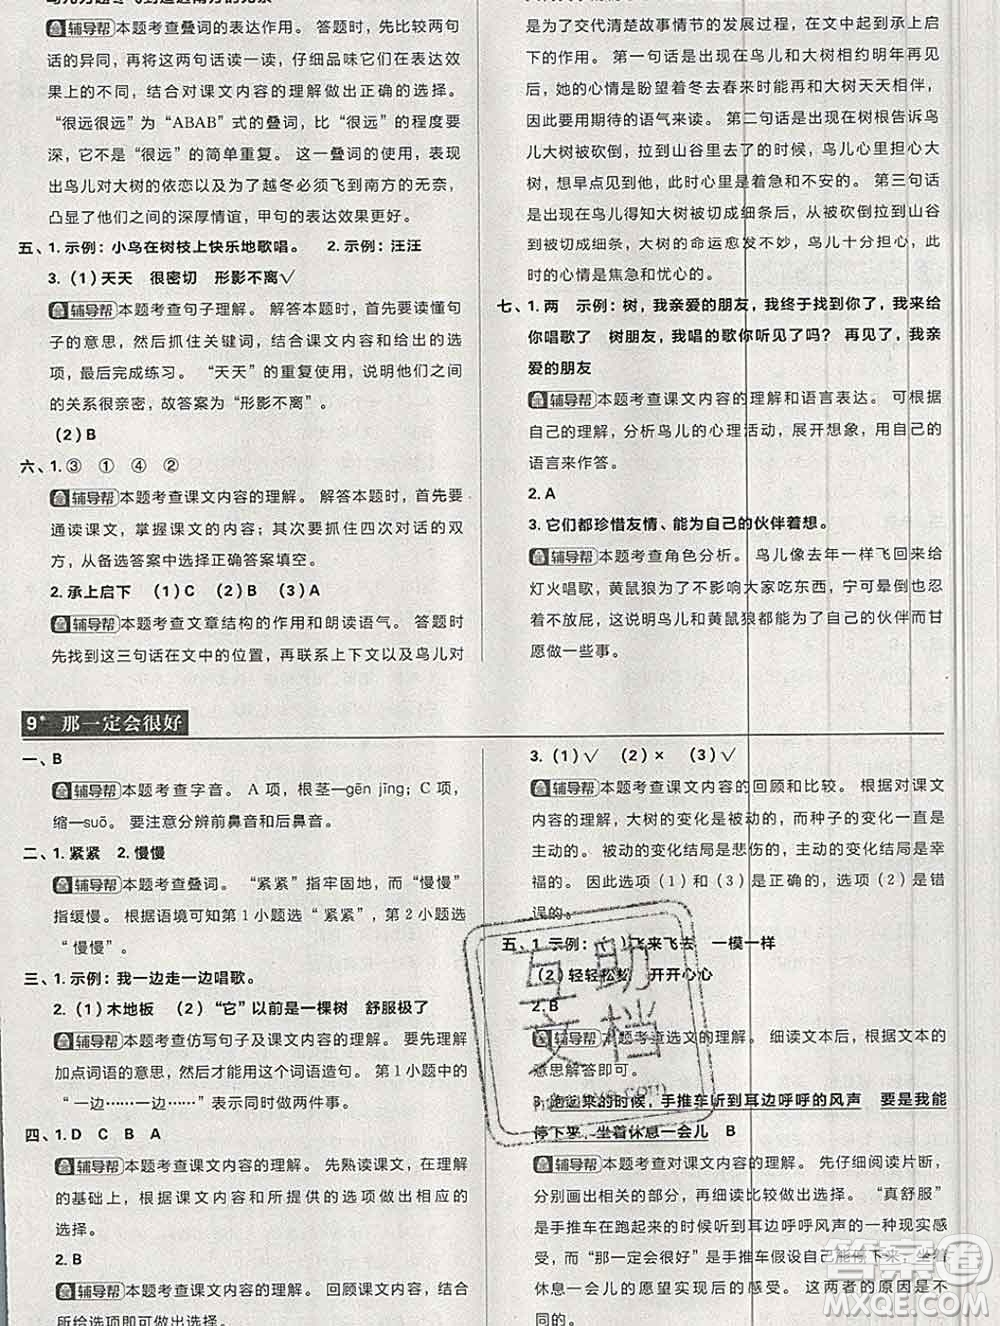 辅导帮 本题考查叠词的表达作用。答题时，先找到两句
话的异同，再将这两句话读一读，仔细品味它们在表达效
果上的不同，结合对课文内容的理解做出正确的选择。
“很远很远”为“ABAB”式的叠词，比“很远”的程度要
深，它不是“很远”的简单重复。这一叠词的使用，表现
出鸟儿对大树的依恋以及为了越冬必须飞到南方的无奈，
凸显了他们之间的深厚情谊，甲句的表达效果更好。
五、1. 示例：小鸟在树枝上快乐地歌唱。 2. 示例：汪汪
3. (1) 天天 很密切 形影不离√
辅导帮 本题考查句子理解。解答本题时，首先要读懂句
子的意思，然后抓住关键词，结合课文和给出的选
项，最后完成练习。“天天”的重复使用，说明他们之间
的关系很亲密，故答案为“形影不离”。
(2) B
六、1. ③ ① ④ ②
辅导帮 本题考查课文内容的理解。解答本题时，首先要
通读课文，掌握课文的内容；其次要抓住四次对话的双
方，从备选答案中选择正确答案填空。
2. 承上启下 (1) C (2) B (3) A
辅导帮 本题考查文章结构的作用和朗读语气。答题时
先找到这三句话在文中的位置，再联系上下文以及鸟儿对
为了交代清楚故事情节的发展过程，在文中起到承上启
下的作用。第一句话是出现在鸟儿和大树相约明年再见
后，她的心情是盼望着冬去春来能和大树天天相伴，
因此要用期待的语气来读。第二句话是出现在树根告诉鸟
儿大树被砍倒，拉到山谷里去了的时候，鸟儿担心大树
被砍，想早点见到他，此时心里是着急和不安的。第三句话
是出现在鸟儿知道大树被切成细条后，从被砍倒拉到山谷
到切成细条，大树的命运愈发不妙，鸟儿十分担心，此
时的心情是焦急和忧心的。
七、1. 两 示例：树，我亲爱的朋友，我终于找到你了，我来给
你唱歌了 树朋友，我唱的歌你听见了吗？再见了，我亲
爱的朋友
辅导帮 本题考查课文内容的理解和语言表达。可根据
自己的理解，分析鸟儿的心理活动，展开想象，用自己的
语言来作答。
2. A
3. 它们都珍惜友情、能为自己的伙伴着想。
辅导帮 本题考查角色分析。鸟儿像去年一样飞回来给
灯火唱歌，黄鼠狼为了不影响大家吃东西，宁可晕倒忍
着不放屁，这说明鸟儿和黄鼠狼都能为自己的伙伴而甘
愿做一些事。
9* 那一定会很好
一、B
辅导帮 本题考查字音。A 项，根茎—gēn jīng；C 项，
缩—suō。要注意分辨前鼻音和后鼻音。
二、1. 紧紧 2. 慢慢
辅导帮 本题考查叠词。“紧紧”指牢固地，而“慢慢”
指缓慢。根据语境可知第 1 小题选“紧紧”，第 2 小题选
“慢慢”。
三、1. 示例：我一边走一边唱歌。
2. (1) 木地板 (2) “它”以前是一棵树 舒服极了
辅导帮 本题考查仿写句子及课文内容的理解。要先理解
加点词语的意思，然后用这个词语造句。第 1 小题中的
“一边……一边”表示同时做两件事。
四、1. D C B A
辅导帮 本题考查课文内容的理解。先熟读课文，在理解
的基础上，根据课文内容和所提供的选项做出相应的
选择。
2. B
辅导帮 本题考查课文内容的理解。回顾课文内容，结合
所给选项即可做出选择。
3. (1) √ (2) × (3) √
辅导帮 本题考查对课文内容的回顾和比较。根据对课文
内容的理解，大树的变化是被动的，而种子的变化一直是
主动的。被动的变化结局是悲伤的，主动的变化结局是幸
福的。因此选项（1）和（3）是正确的，选项（2）是错
误的。
五、1. 示例：(1) 飞来飞去 一模一样
(2) 轻轻松松 开开心心
2. B
辅导帮 本题考查选文的理解。细读文本后，根据文本的
意思解答即可。
3. 跑起来的时候，手推车听到耳边呼呼的风声 要是我能
停下来，坐着休息一会儿 B
辅导帮 本题考查对课文内容的理解。先仔细阅读片断，
分别找出相关的部分，再细读比较异同点。“真舒服”
是手推车在跑起来的时候听到耳边呼呼风声的一种现实感
受，而“那一定会很好”是手推车假设自己能停下来，坐着
休息一会儿的愿望实现后的感受。这两者的原因是不
同的。
互助
文档
答案圈
MXQE.COM